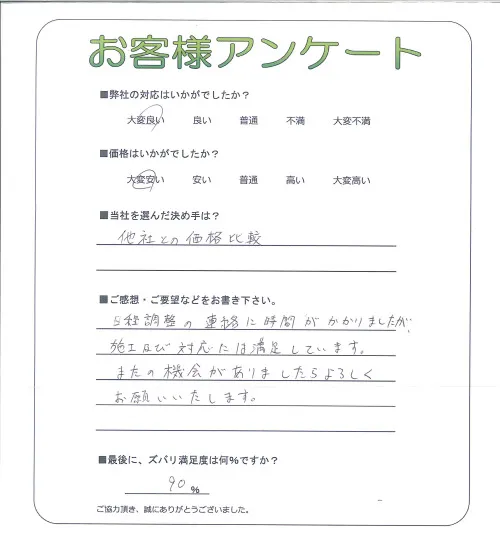 お客様アンケート
■弊社の対応はいかがでしたか？
大変良い　良い　普通　不満　大変不満
■価格はいかがでしたか？
大変安い　安い　普通　高い　大変高い
■当社を選んだ決め手は？
他社との価格比較
■ご感想・ご要望などをお書き下さい。
日程調整の連絡に時間がかかりましたが、
施工及び対応には満足しています。
またの機会がありましたらよろしく
お願いいたします。
■最後に、ズバリ満足度は何%ですか？
90 %
ご協力頂き、誠にありがとうございました。